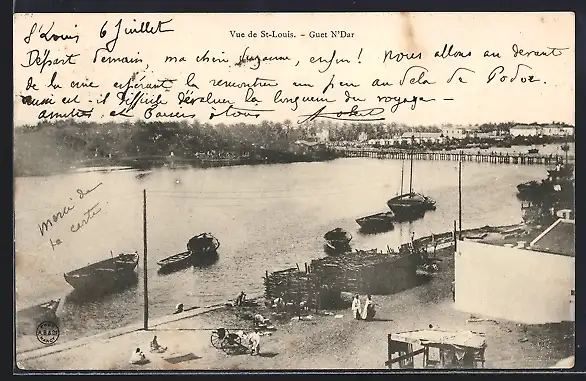 Vue de St-Louis. — Guet N'Dar
St Louis 6 Juillet
Départ demain, ma chère Suzanne, enfin! Nous allons au devant
de la crue espérant la rencontrer un peu au delà de Podor.
aussi est-il difficile d'évaluer la longueur du voyage —
amitiés et baisers à tous
Merci de
ta carte